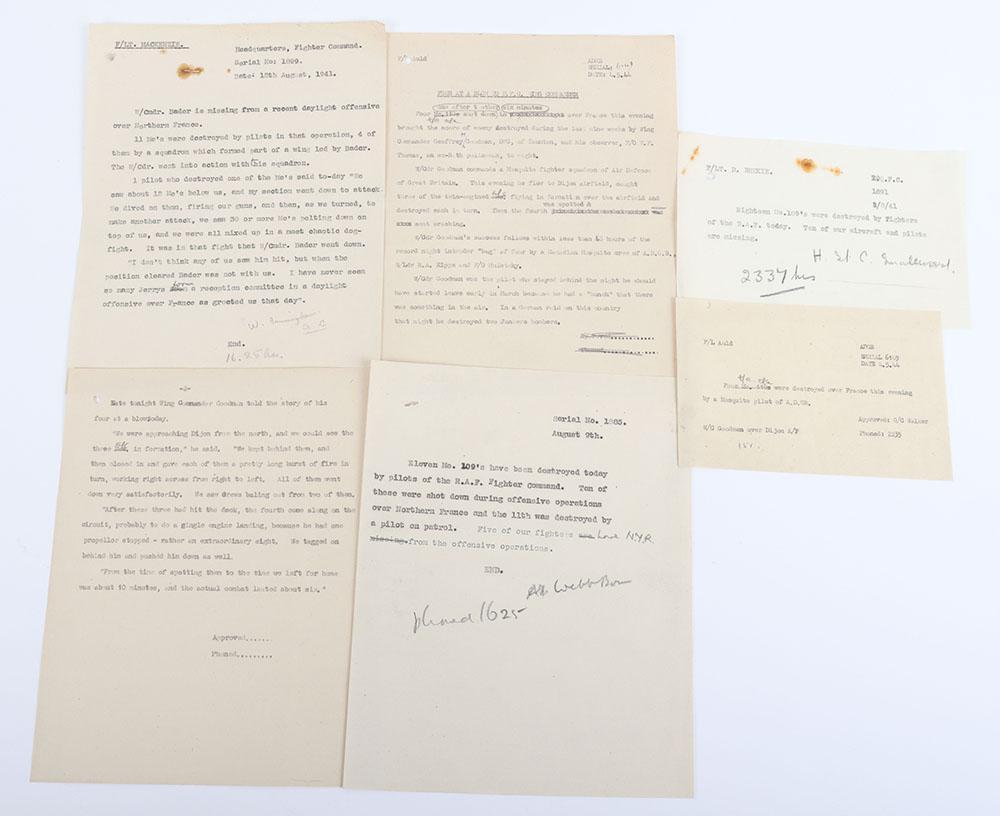 F/LT. MACKENZIE.
Headquarters, Fighter Command.
Serial No: 1899.
Date: 12th August, 1941.
W/Cmdr. Bader is missing from a recent daylight offensive
over Northern France.
11 Me's were destroyed by pilots in that operation, 4 of
them by a squadron which formed part of a wing led by Bader.
The W/Cdr. went into action with his squadron.
1 pilot who destroyed one of the Me's said to-day "We
saw about 12 Me's below us, and my section went down to attack.
We dived on them, firing our guns, and then, as we turned, to
make another attack, we saw 30 or more Me's pelting down on
top of us, and we were all mixed up in a most chaotic dog-
fight. It was in that fight that W/Cmdr. Bader went down.
"I don't think any of us saw him hit, but when the
position cleared Bader was not with us. I have never seen
so many Jerrys form a reception committee in a daylight
offensive over France as greeted us that day".
End.
16.25 hrs.
F/L Auld
ADGB
SERIAL: 6149
DATE: 4.5.44
FOUR AT A BLOW TO R.V.G. WING COMMANDER
one after t other six minutes
Four shot down in over France this evening
t/e a/c
brought the score of enemy destroyed during the last nine weeks by Wing
Commander Geoffrey Goodman, DFC, of and his observer, F/O W.F.
Thomas, an ex-Bath policeman, to eight.
W/Cdr Goodman commands a Mosquito fighter squadron of Air Defence
of Great Britain. This evening he flew to Dijon airfield, caught
three of the twin-engined flying in formation over the airfield and
was spotted &
destroyed each in turn. Then the fourth
sent crashing.
W/Cdr Goodman's success follows within less than 48 hours of the
record night intruder "bag" of four by a Canadian Mosquito crew of A.D.G.B.,
S/Ldr R.A. Kipp and F/O Huletsky.
W/Cdr Goodman was the pilot who stayed behind the night he should
have started leave early in March because he had a "hunch" that there
was something in the air. In a German raid on this country
that night he destroyed two Junkers bombers.
F/LT D.
HQ.F.C.
1891
9/8/41
Eighteen Me.109's were destroyed by fighters
of the R.A.F. today. Ten of our aircraft and pilots
are missing.
2337 hrs
F/L Auld
ADGB
SERIAL 6149
DATE 4.5.44
t/e a/c
Four were destroyed over France this evening
by a Mosquito pilot of A.D.GB.
W/C Goodman over Dijon A/F
Approved: G/C Walker
Phoned: 2235
-2-
Late tonight Wing Commander Goodman told the story of his
four at a blow today.
"We were approaching Dijon from the north, and we could see the
three in formation," he said. "We kept behind them, and
then closed in and gave each of them a pretty long burst of fire in
turn, working right across from right to left. All of them went
down very satisfactorily. We saw crews baling out from two of them.
"After these three had hit the deck, the fourth came along on the
circuit, probably to do a single engine landing, because he had one
propellor stopped - rather an extraordinary sight. We tagged on
behind him and pushed him down as well.
"From the time of spotting them to the time we left for home
was about 10 minutes, and the actual combat lasted about six."
Approved......
Phoned.........
Serial No. 1885.
August 9th.
Eleven Me. 109's have been destroyed today
by pilots of the R.A.F. Fighter Command. Ten of
these were shot down during offensive operations
over Northern France and the 11th was destroyed by
a pilot on patrol. Five of our fighters are have N.Y.R.
missing from the offensive operations.
END.
phoned 1625